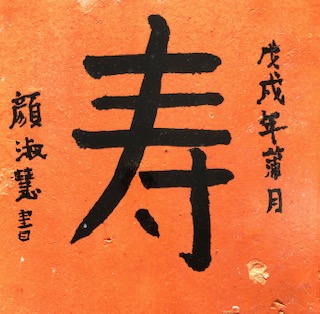 戊戌年蒲月
寿
顔淑慧書